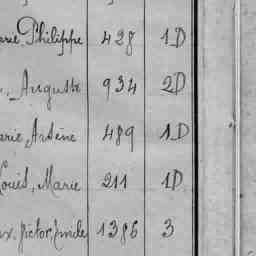 arie Philippe 428 1D
Auguste 934 2D
arie, Arsène 489 1D
Louis, Marie 211 1D
ux, Victor, Emile 1386 3